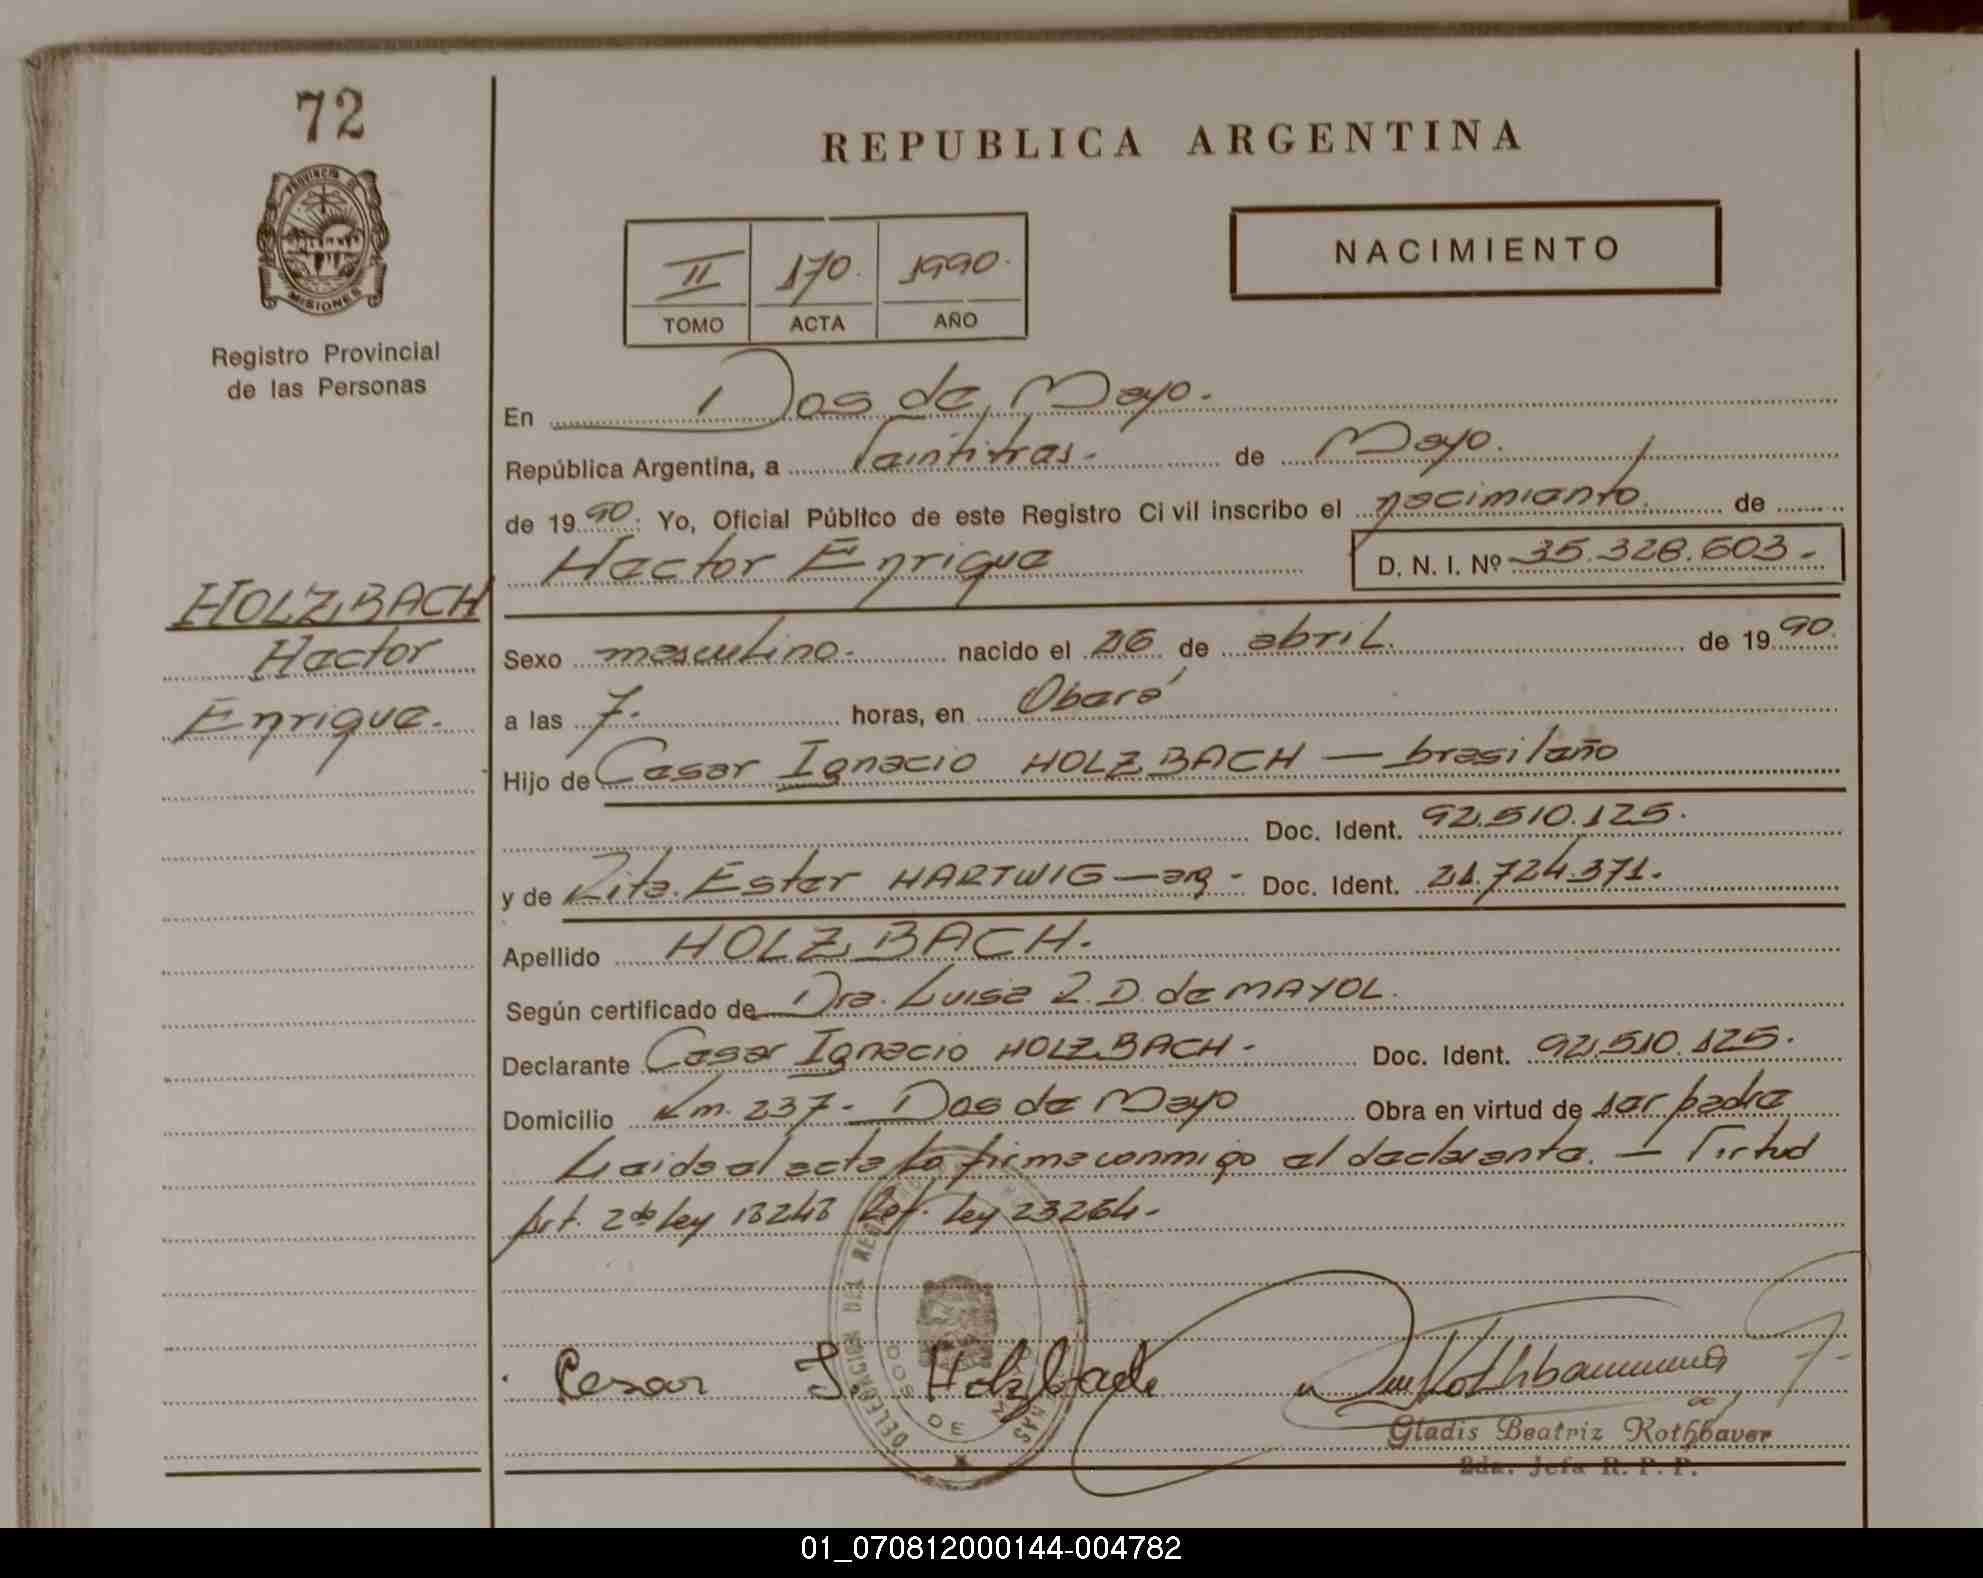 72
PROVINCIA DE
MISIONES
Registro Provincial
de las Personas
HOLZBACH
Hector
Enrique.
REPUBLICA ARGENTINA
NACIMIENTO
II 170. 1990.
TOMO ACTA AÑO
En Dos de Mayo.
República Argentina, a Veintitres. de Mayo.
de 19 90: Yo, Oficial Público de este Registro Civil inscribo el nacimiento. de
Hector Enrique D. N. I. Nº 35.328.603.
Sexo masculino. nacido el 26 de abril. de 19 90.
a las 7. horas, en Oberá
Hijo de Cesar Ignacio HOLZBACH — brasileño
Doc. Ident. 92.510.125.
y de Rita Ester HARTWIG — arg - Doc. Ident. 21.724.371.
Apellido HOLZBACH.
Según certificado de Dra. Luisa R. D. de MAYOL.
Declarante Cesar Ignacio HOLZBACH - Doc. Ident. 92.510.125.
Domicilio Km. 237 - Dos de Mayo Obra en virtud de ser padre
Leida el acta la firma conmigo el declarante. — Virtud
Art. 2do Ley 18248 Ref. Ley 23264.
DELEGACION DEL
DOS DE
Cesar I. Holzbach
Gladis Beatriz Rothbaver
2da. Jefa R. P. P.
01_070812000144-004782